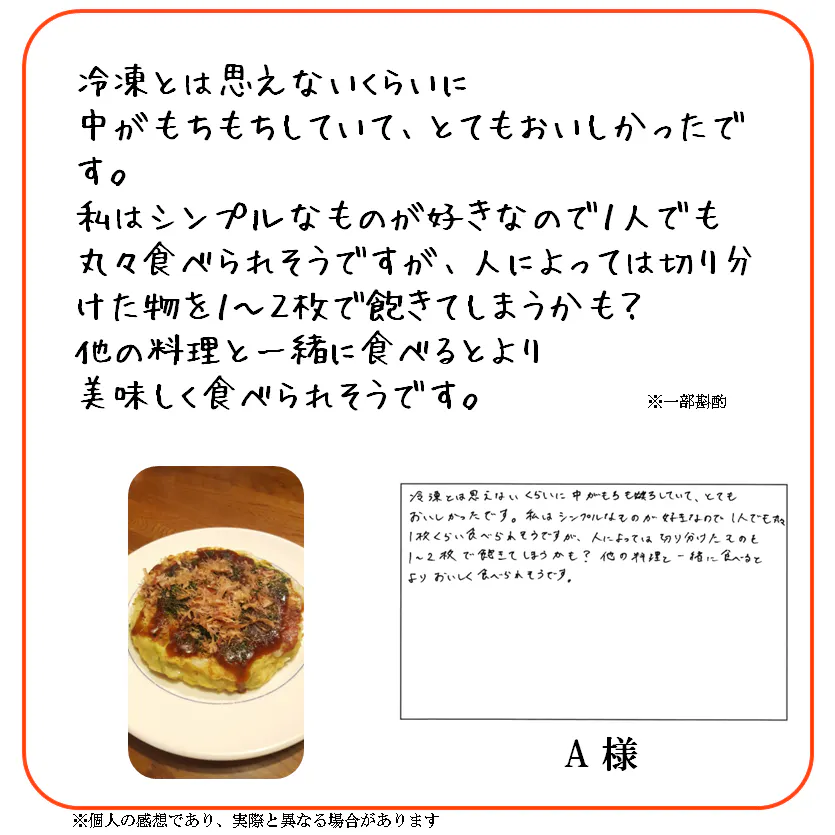 冷凍とは思えないくらいに
中がもちもちしていて、とてもおいしかったで
す。
私はシンプルなものが好きなので1人でも
丸々食べられそうですが、人によっては切り分
けた物を1～2枚で飽きてしまうかも?
他の料理と一緒に食べるとより
美味しく食べられそうです。
※一部斟酌
冷凍とは思えないくらいに中がもちもちしていて、とても
おいしかったです。私はシンプルなものが好きなので1人でも
1枚くらい食べられそうですが、人によっては切り分けたものも
1~2枚で飽きてしまうかも?他の料理と一緒に食べると
よりおいしく食べられそうです。
A 様
※個人の感想であり、実際と異なる場合があります